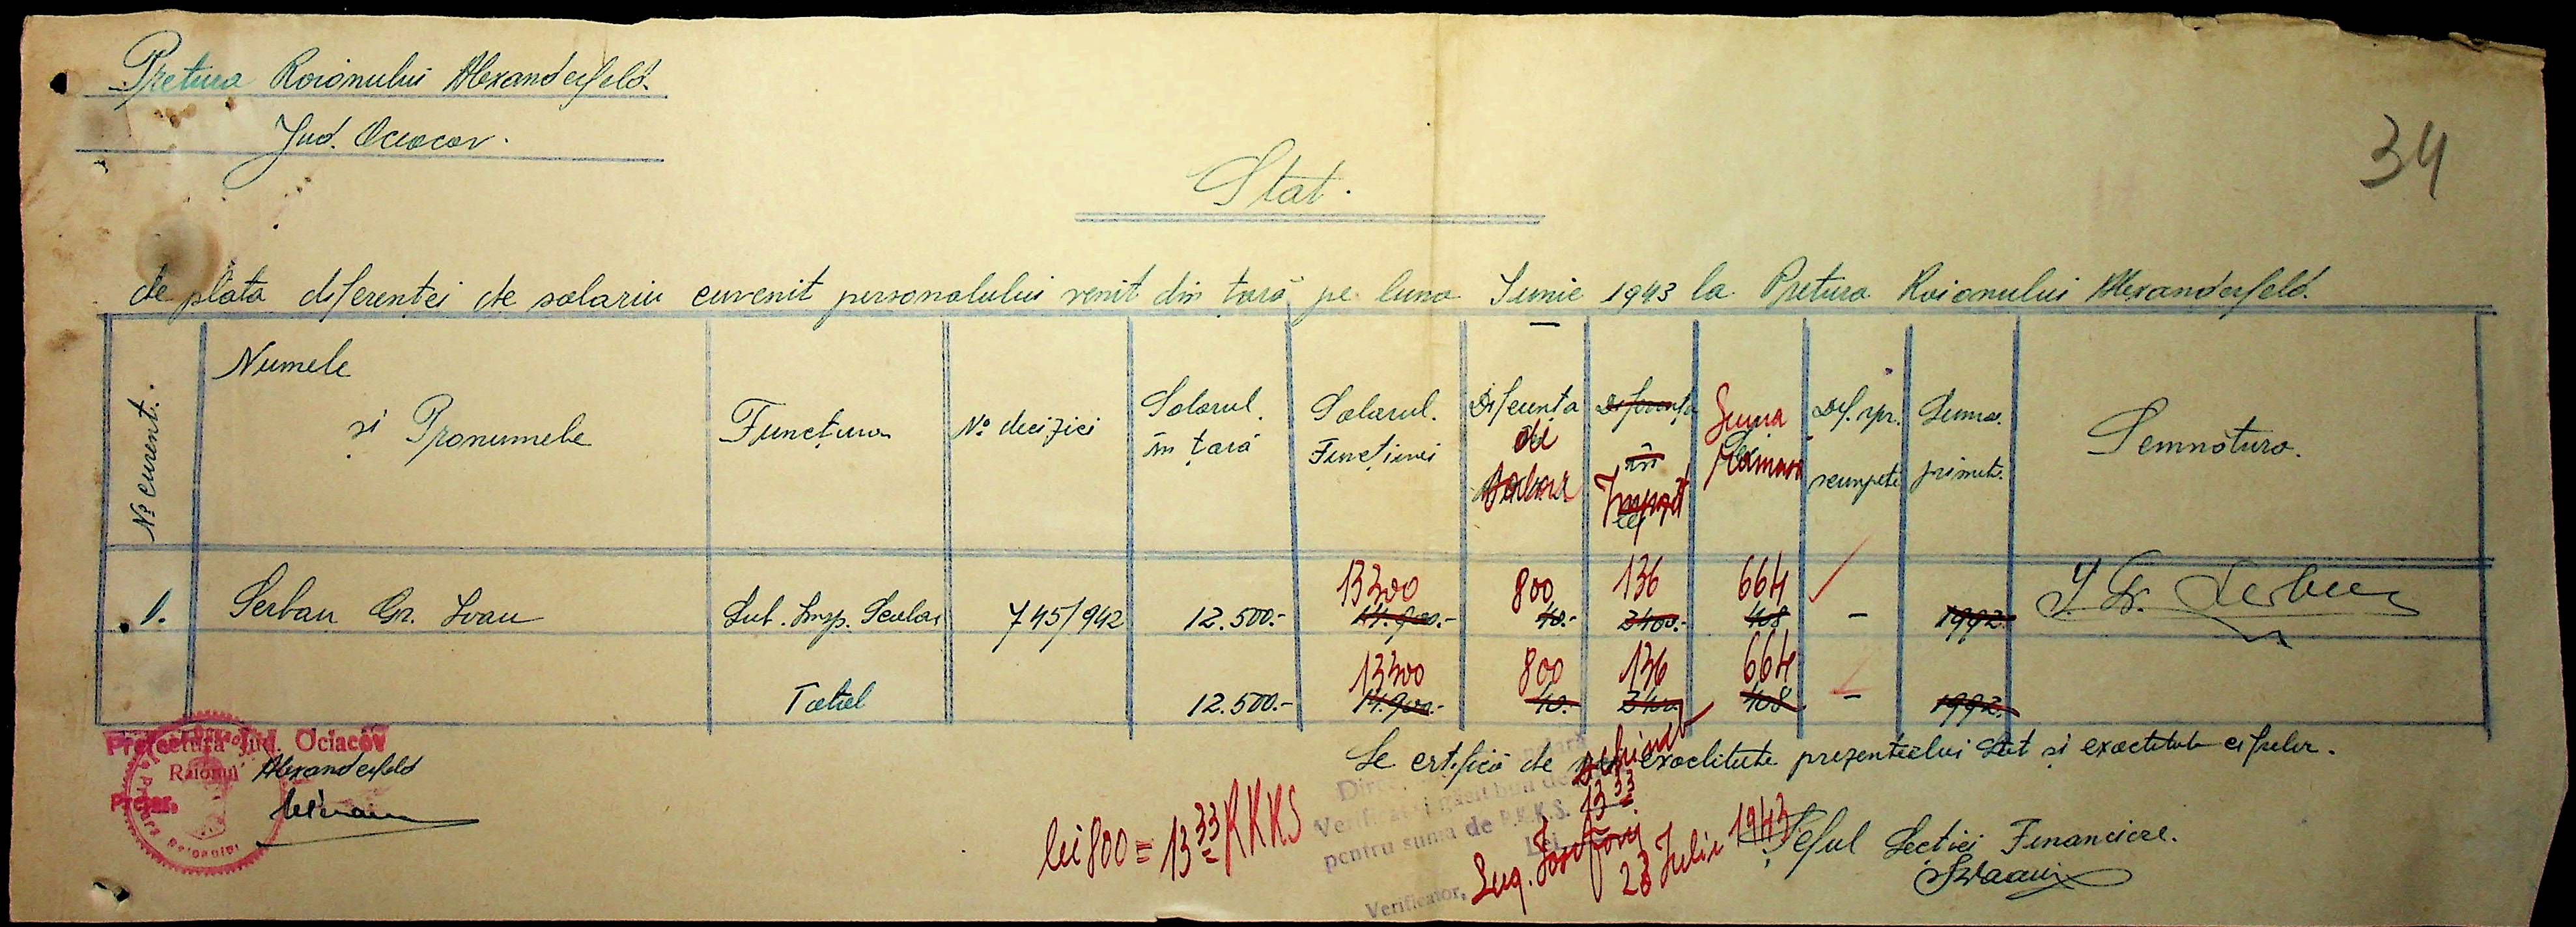 Pretura Raionului Alexanderfeld.
Jud. Ociacov.
34
Stat.
de plata diferenței de salariu cuvenit personalului venit din țară pe luna Iunie 1943 la Pretura Raionului Alexanderfeld.
No curent.
Numele și Pronumele
Funcțiunea
No deciziei
Salarul în țară
Salarul Funcțiunei
Diferența de
Diferența în Impozit
Suma Rămasă
Dif. spr.
Suma primită
Semnătura.
1. Serban Gr. Ioan Sub. Insp. Scolar 745/942 12.500.- 13300 14.900.- 800 40.- 136 2400.- 664 408 - 1992 I. Gr. Serban
Total 12.500.- 13300 14.900.- 800 40.- 136 2400 664 408 - 1992.
Prefectura Jud. Ociacov
Raionul Alexanderfeld
Pretor,
Se certifică de exactitate prezentului stat și exactitate cifrelor.
lei 800 = 13 33 RKKS
Verificat și găsit bun de
pentru suma de R.K.K.S. 13 33
Lei
Verificator,
28 Iulie 1943
Șeful Secției Financiare.